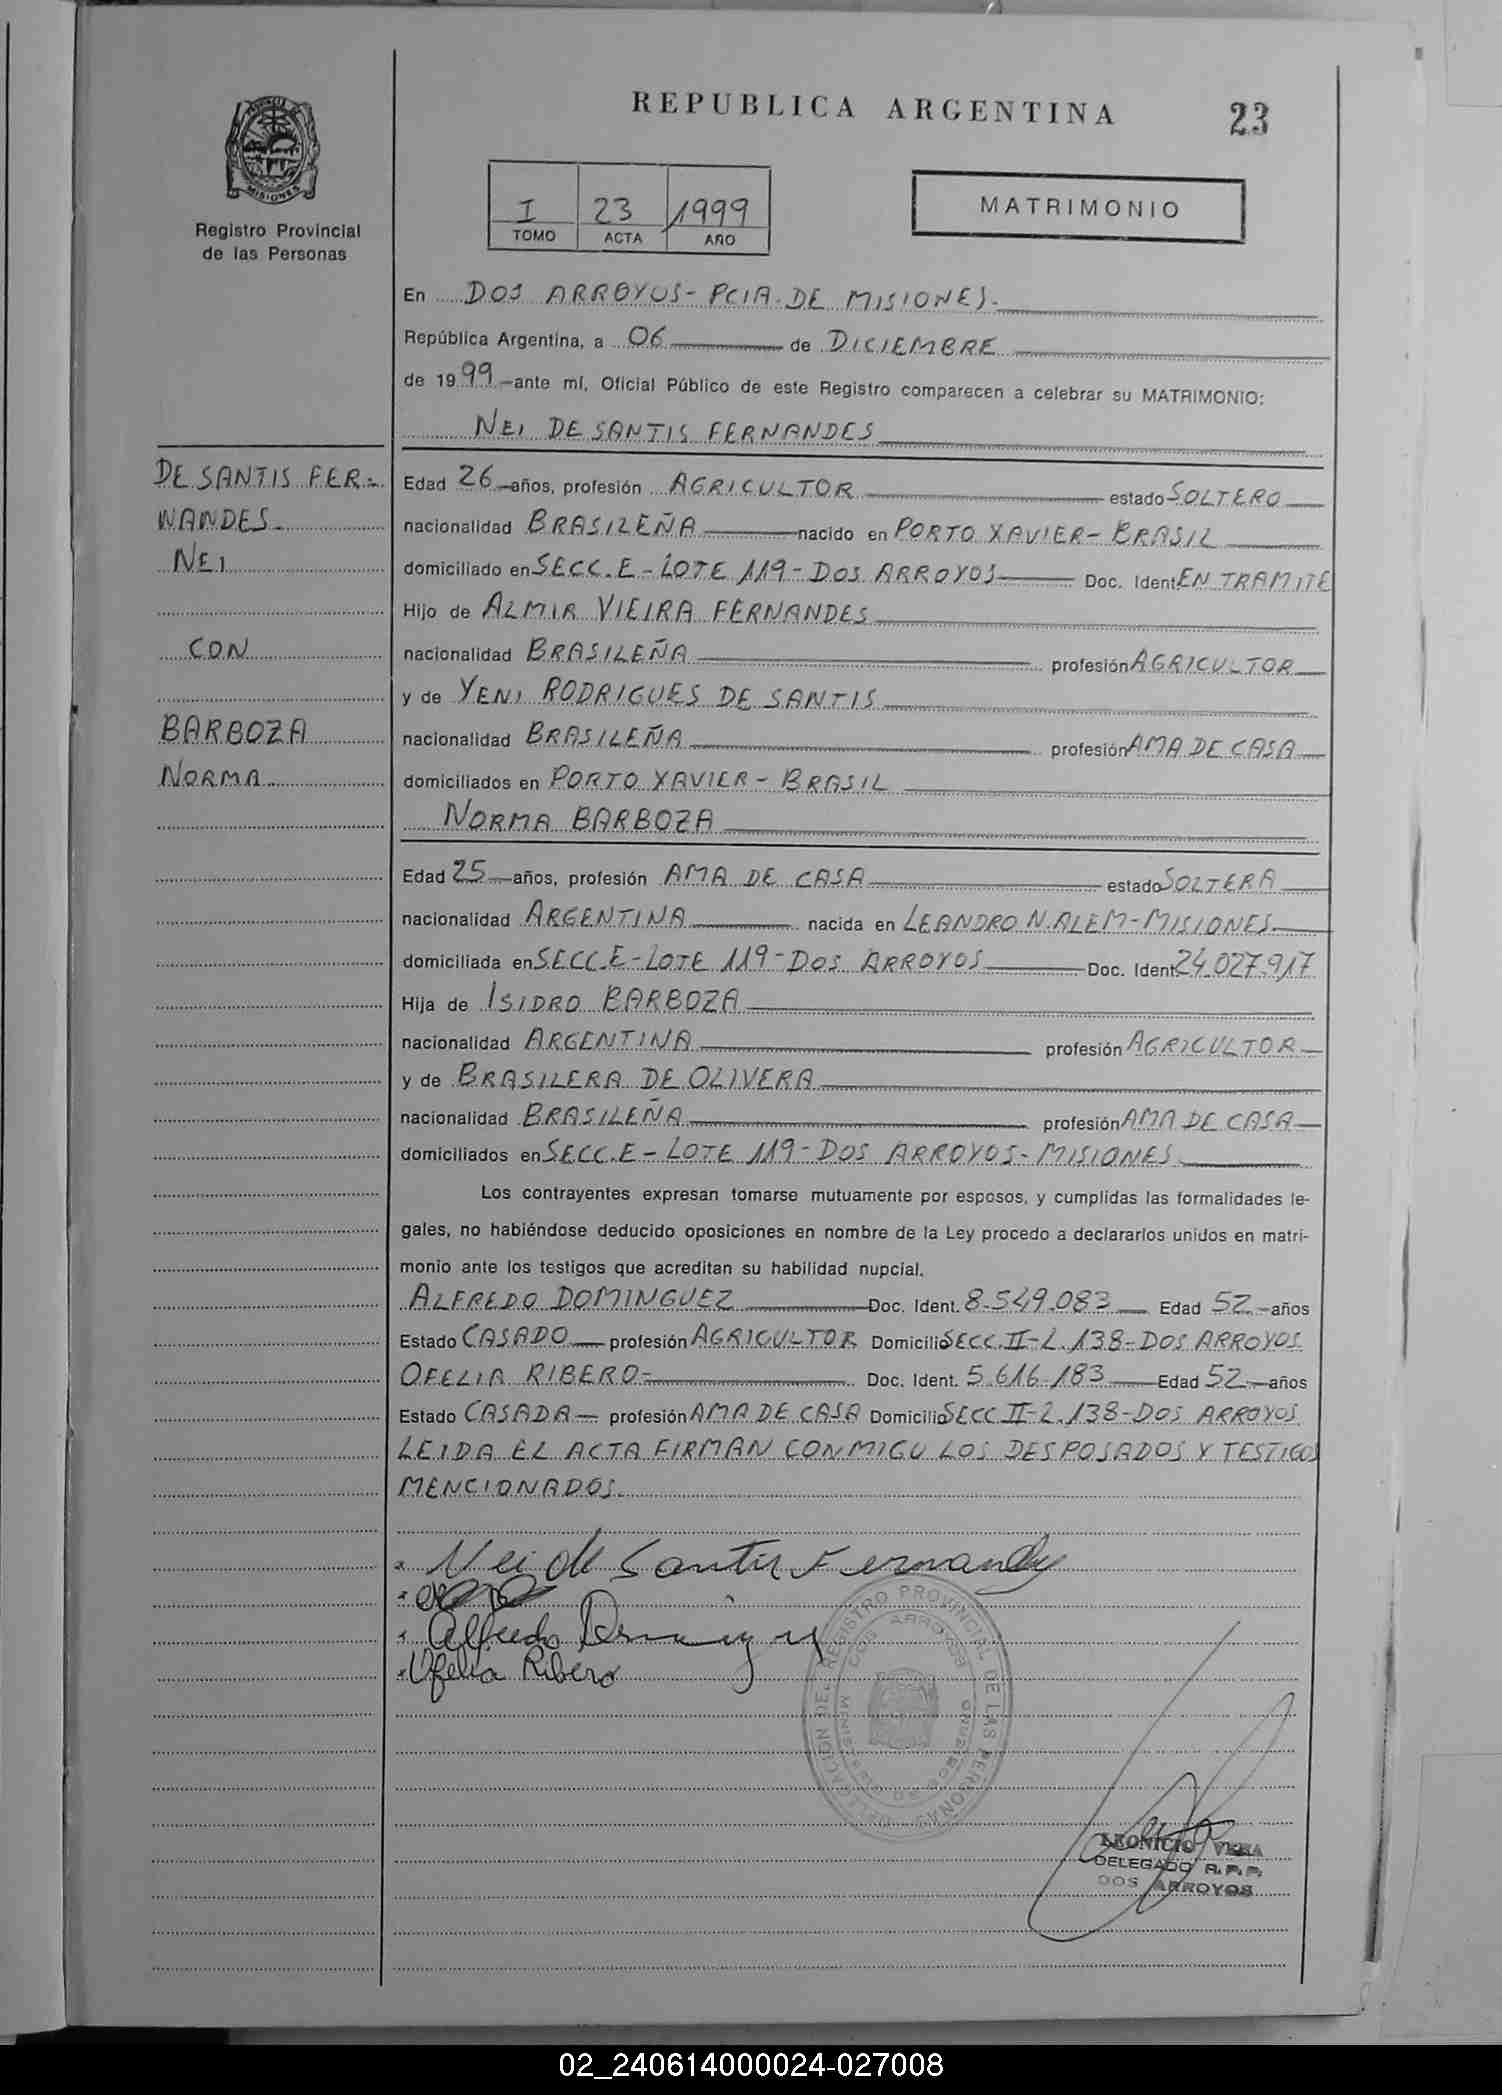 REPUBLICA ARGENTINA
23
PROVINCIA DE
MISIONES
Registro Provincial
de las Personas
I 23 1999
TOMO ACTA AÑO
MATRIMONIO
En DOS ARROYOS- PCIA. DE MISIONES.
República Argentina, a 06 de DICIEMBRE
de 1999 ante mí, Oficial Público de este Registro comparecen a celebrar su MATRIMONIO:
NEI DE SANTIS FERNANDES
DE SANTIS FER=
NANDES
NEI
CON
BARBOZA
NORMA
Edad 26 años, profesión AGRICULTOR estado SOLTERO
nacionalidad BRASILEÑA nacido en PORTO XAVIER- BRASIL
domiciliado en SECC.E-LOTE 119-DOS ARROYOS Doc. Ident. EN TRAMITE
Hijo de ALMIR VIEIRA FERNANDES
nacionalidad BRASILEÑA profesión AGRICULTOR
y de YENI RODRIGUES DE SANTIS
nacionalidad BRASILEÑA profesión AMA DE CASA
domiciliados en PORTO XAVIER- BRASIL
NORMA BARBOZA
Edad 25 años, profesión AMA DE CASA estado SOLTERA
nacionalidad ARGENTINA nacida en LEANDRO N. ALEM-MISIONES
domiciliada en SECC.E-LOTE 119-DOS ARROYOS Doc. Ident. 24.027.917
Hija de ISIDRO BARBOZA
nacionalidad ARGENTINA profesión AGRICULTOR
y de BRASILERA DE OLIVERA
nacionalidad BRASILEÑA profesión AMA DE CASA
domiciliados en SECC.E-LOTE 119-DOS ARROYOS-MISIONES
Los contrayentes expresan tomarse mutuamente por esposos, y cumplidas las formalidades le-
gales, no habiéndose deducido oposiciones en nombre de la Ley procedo a declararlos unidos en matri-
monio ante los testigos que acreditan su habilidad nupcial.
ALFREDO DOMINGUEZ Doc. Ident. 8.549.083 Edad 52 años
Estado CASADO profesión AGRICULTOR Domicilio SECC.II-L.138-DOS ARROYOS
OFELIA RIBERO- Doc. Ident. 5.616.183 Edad 52 años
Estado CASADA profesión AMA DE CASA Domicilio SECC II-L.138-DOS ARROYOS
LEIDA EL ACTA FIRMAN CONMIGO LOS DESPOSADOS Y TESTIGOS
MENCIONADOS.
Nei de Santis Fernandes
Alfredo Dominguez
Ofelia Ribero
DELEGACION DEL REGISTRO PROVINCIAL DE LAS PERSONAS
DOS ARROYOS
MISIONES
LEONICIO VERA
DELEGADO R.P.P.
DOS ARROYOS
02_240614000024-027008